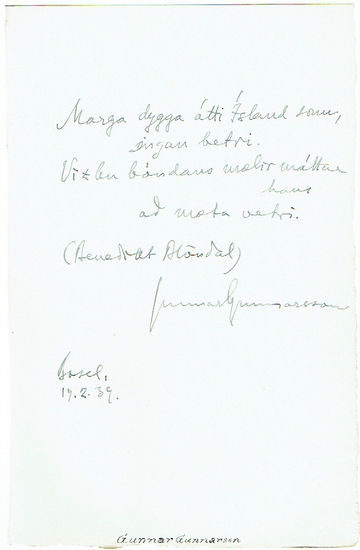 Marga dygga átti Ísland sonu,
engan betri.
bóndans mælir máttar
hans
að meta vetri.
(Benedikt Blöndal)
Gunnar Gunnarsson
Basel,
19.2.39.
Gunnar Gunnarson